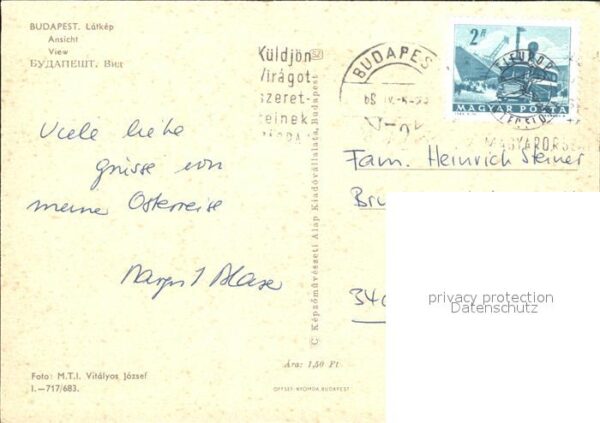 BUDAPEST. Látkép
Ansicht
View
БУДАПЕШТ. Вид
Küldjön
Virágot
szeret-
teinek
BUDAPES
2 Ft
MAGYAR POSTA
MAGYARORSZ
Viele liebe
grüsse von
meine Ostereise
Fam. Heinrich Steiner
Bru
340
privacy protection
Datenschutz
© Képzőművészeti Alap Kiadóvállalata, Budapest
Ára: 1,50 Ft
Foto: M.T.I. Vitályos József
I.—717/683.
OFFSET-NYOMDA BUDAPEST